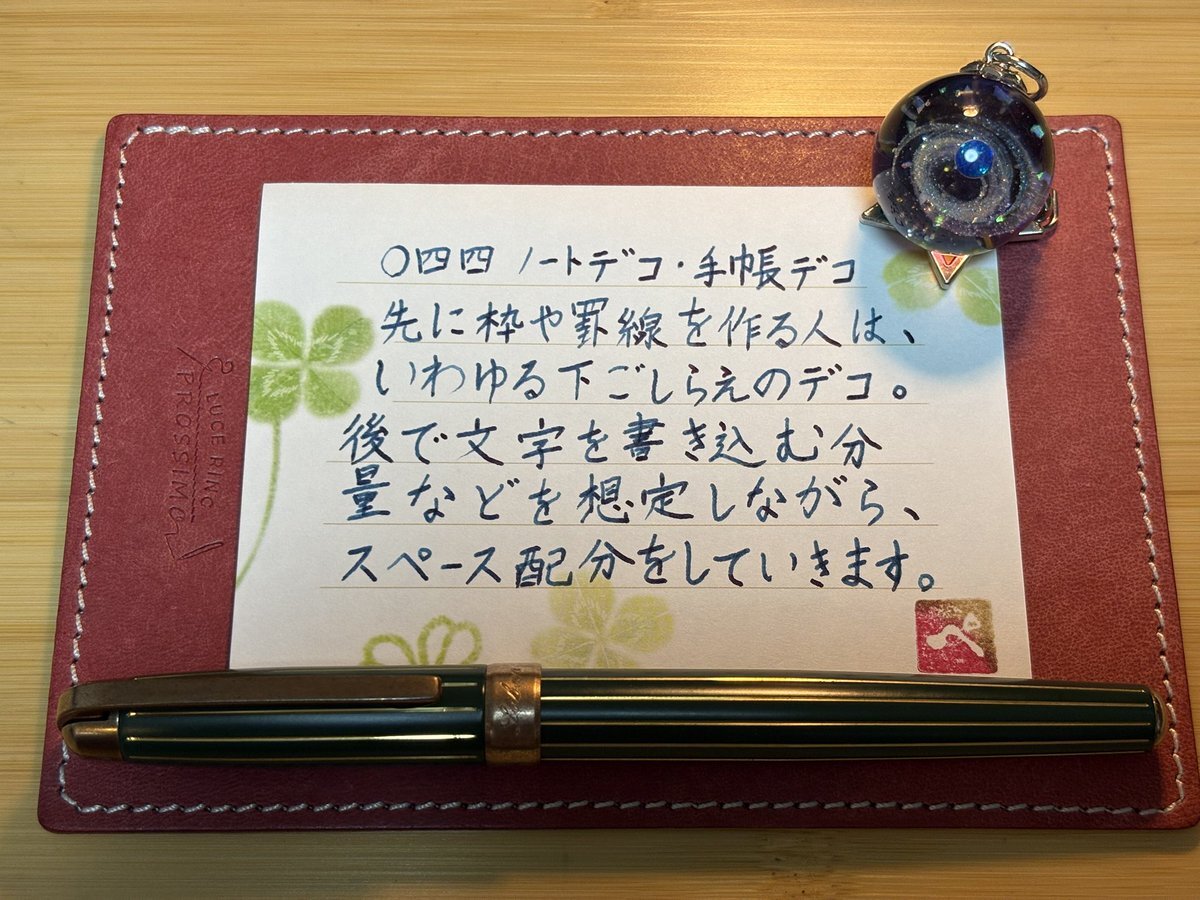 〇四四 ノートデコ・手帳デコ
先に枠や罫線を作る人は、
いわゆる下ごしらえのデコ。
後で文字を書き込む分
量などを想定しながら、
スペース配分をしていきます。
ぺ
LUCE RING
PROSSIMO